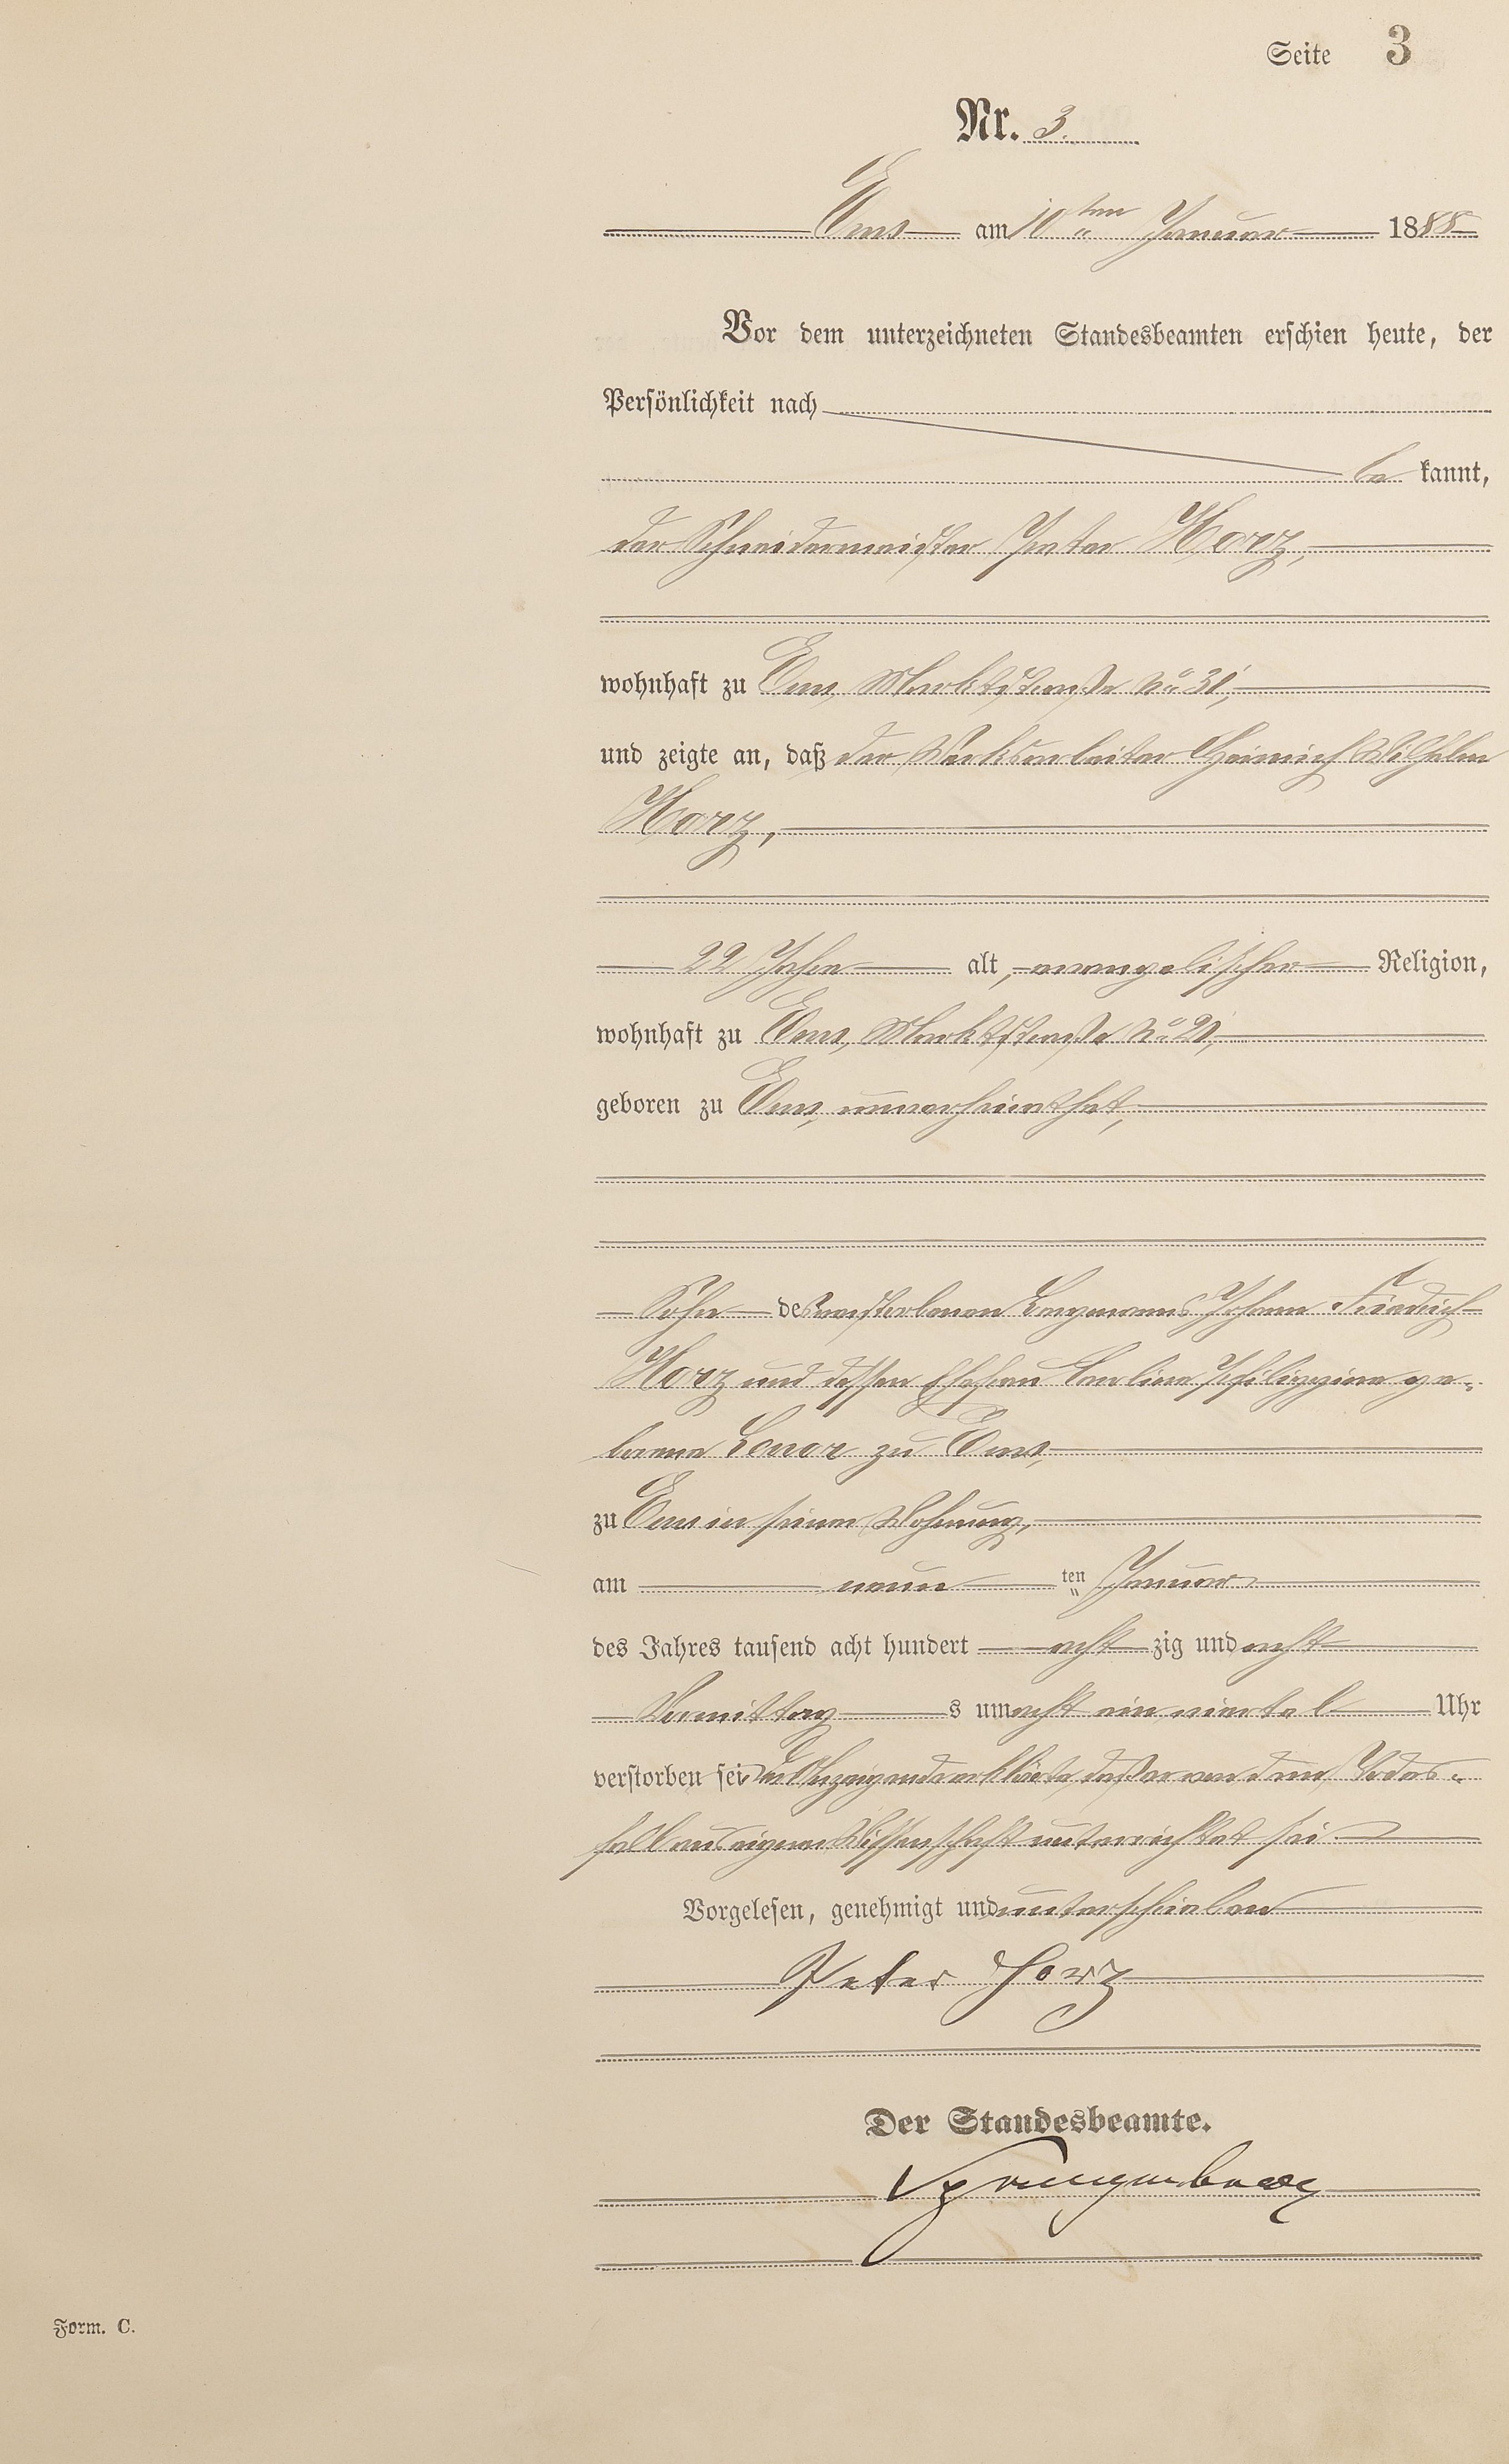 Seite 3
Nr. 3.
Ems am 10ten Januar 1888
Vor dem unterzeichneten Standesbeamten erschien heute, der
Persönlichkeit nach
be kannt,
der Schneidermeister Peter Horz,
wohnhaft zu Ems, Marktstraße No 31,
und zeigte an, daß der Werksarbeiter Heinrich Wilhelm
Horz,
22 Jahre alt, evangelischer Religion,
wohnhaft zu Ems, Marktstraße No 21,
geboren zu Ems, unverheirathet,
Sohn des verstorbenen Bergmanns Johann Friedrich
Horz und dessen Ehefrau Karline Philippine ge-
borene zu Ems,
zu Ems in seiner Wohnung,
am neun ten Januar
des Jahres tausend acht hundert acht zig und acht
Vormittag s um acht ein viertel Uhr
verstorben sei. Der Anzeigende erklärte, daß er von dem Todes-
fall aus eigener Wissenschaft unterrichtet sei.
Vorgelesen, genehmigt und unterschrieben
Peter Horz
Der Standesbeamte.
Form. C.